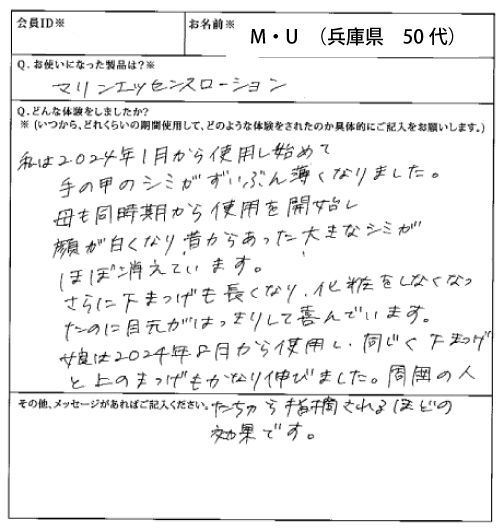 会員ID※
お名前※
M・U （兵庫県 50代）
Q. お使いになった製品は?※
マリンエッセンスローション
Q. どんな体験をしましたか?
※（いつから、どれくらいの期間使用して、どのような体験をされたのか具体的にご記入をお願いします。）
私は2024年1月から使用し始めて
手の甲のシミがずいぶん薄くなりました。
母も同時期から使用を開始し
顔が白くなり昔からあった大きなシミが
ほぼ消えています。
さらに下まつげも長くなり、化粧をしなくなっ
たのに目元がはっきりして喜んでいます。
娘は2024年8月から使用し、同じく下まつげ
と上のまつげもかなり伸びました。周囲の人
その他、メッセージがあればご記入ください。
たちから指摘されるほどの
効果です。